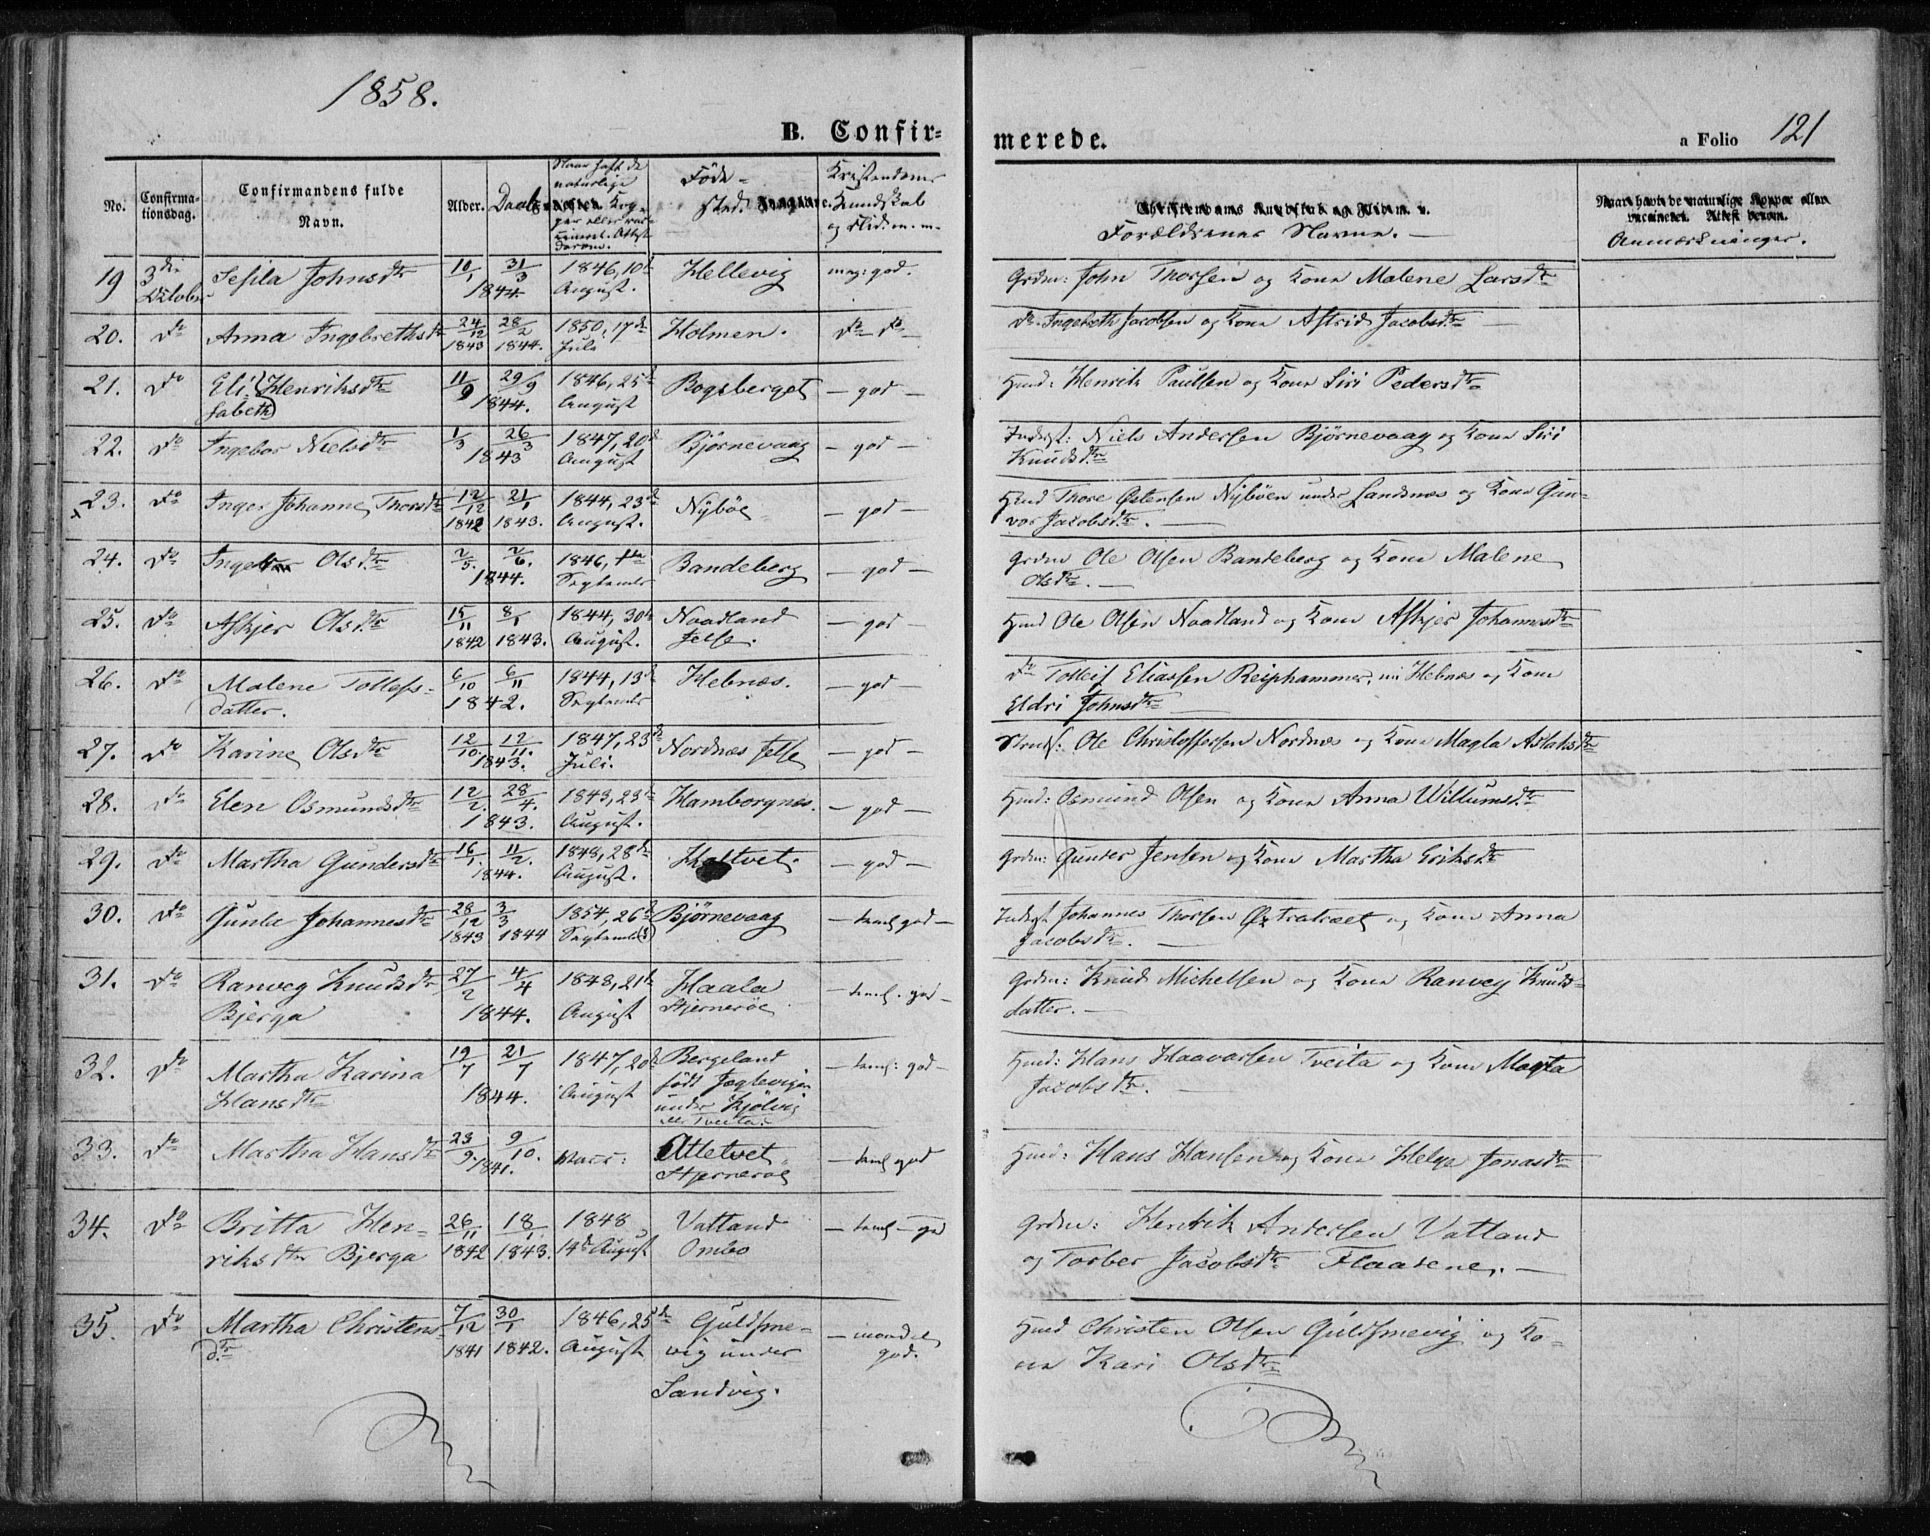 1858.
B. Confir-
merede.
a Folio 121
No.
Confirma-
tionsdag.
Confirmandens fulde
Navn.
Alder.
Daab
Naar haft de
naturlige
Føde-
sted.
Kristendoms
Kundskab
og Flid m. m.
Forældrenes Navne. —
Anmærkninger.
19 3die October Sesila Johnsdtr 10/1 31/3 1844 1846, 10de August. Hellevig meg: god. Grdm: John Thorsen og Kona Malene Larsdtr
20. do Anna Ingebrethsdtr 24/12 1843 28/2 1844. 1850, 17de Juli Holmen. do do do Ingebreth Jacobsen og Kona Astrid Jacobsdtr —
21. do Elisabeth Henriksdtr 11/9 29/9 1844. 1846, 25de August Bogsberget — god — Hmd: Henrik Paulsen og Kona Siri Pedersdtr
22. do Ingebor Nielsdtr 1/3 26/3 1843 1847, 20de August Bjørnevaag — god — Inderst: Niels Andersen Bjørnevaag og Kona Siri
Knudsdtr
23. do Inger Johanne Thorsdtr 12/12 1842 21/1 1843. 1844, 23de August. Nybøe — god — Hmd Thore Østensen Nybøen under Landsnes og Kona Gun-
vor Jacobsdtr. —
24. do Ingebor Olsdtr 2/5. 2/6. 1844. 1846, September Bandeberg — god — Grdm Ole Olsen Bandeberg og Kona Malene
Olsdtr. —
25. do Askjer Olsdtr 15/11 1842 8/1 1843. 1844, 30te August. Naadland
Jelse. — god — Hmd Ole Olsen Naadland og Kona Askjer Johannesdtr
26. do Malene Tollefs-
datter. 6/10 6/11 1842. 1844, 13de September Hebnes. — god — do Tollef Eliassen Reiphammer, nu Hebnes og Kona
Eldri Johnsdtr
27. do Karine Olsdtr 12/10. 12/11. 1843. 1847, 23de Juli. Nordnes Jelse — god — Ole Christoffersen Nordnes og Kona Magla Aslaksdtr
28. do Elen Osmundsdtr 12/2. 28/4. 1843. 1843, 23de August. Hamborgnes. — god — Hmd: Osmund Olsen og Kona Anna Willumsdtr
29. do Martha Gundersdtr 16/1. 11/2. 1844. 1848, 28de August. — god — Grdm: Gunder Jensen og Kona Martha Eriksdtr
30. do Gunla Johannesdtr 28/12 1843 3/3 1844 1854, 26de September Bjørnevaag — teml god — Inderst Johannes Thorsen og Kona Anna
Jacobsdtr. —
31. do Ranveg Knudsdtr
Bjerga 27/2 4/4 1844. 1848, 21de August Haala
Hjernerøe — teml. god — Grdm: Knud Michelsen og Kona Ranveg Knuds-
datter. —
32. do Martha Karina
Hansdtr 19/7 21/7 1844. 1847, 20de August Bergeland
født Joglevigen
under Kjølvig
Tveita. — teml: god — Hmd: Hans Haavarsen Tveita og Kona Magla
Jacobsdtr. —
33. do Martha Hansdtr 23/9. 9/10. 1841. Attetvet
Hjernerøe — teml god Hmd: Hans Hansen og Kona Helge Jonasdtr
34. do Britta Hen-
riksdtr Bjerga 26/11 1842 18/1 1843. 1848 14de August Vatland
Ombo — teml — god Grdm: Henrik Andersen Vatland
og Torber Jacobsdtr Flaatene. —
35. do Martha Christens-
dtr 7/12 1841 30/1 1842. 1846, 25de August Guldsme-
vig under
Sandvig. — maadel.
god. Hmd Christen Olsen Guldsmevig og Ko-
na Kari Olsdtr